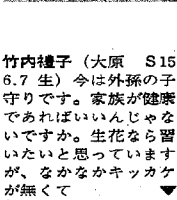 竹内禮子（大原　S15
6.7生）今は外孫の子
守りです。家族が健康
であればいいんじゃな
いですか。生花なら習
いたいと思っています
が、なかなかキッカケ
が無くて　▼